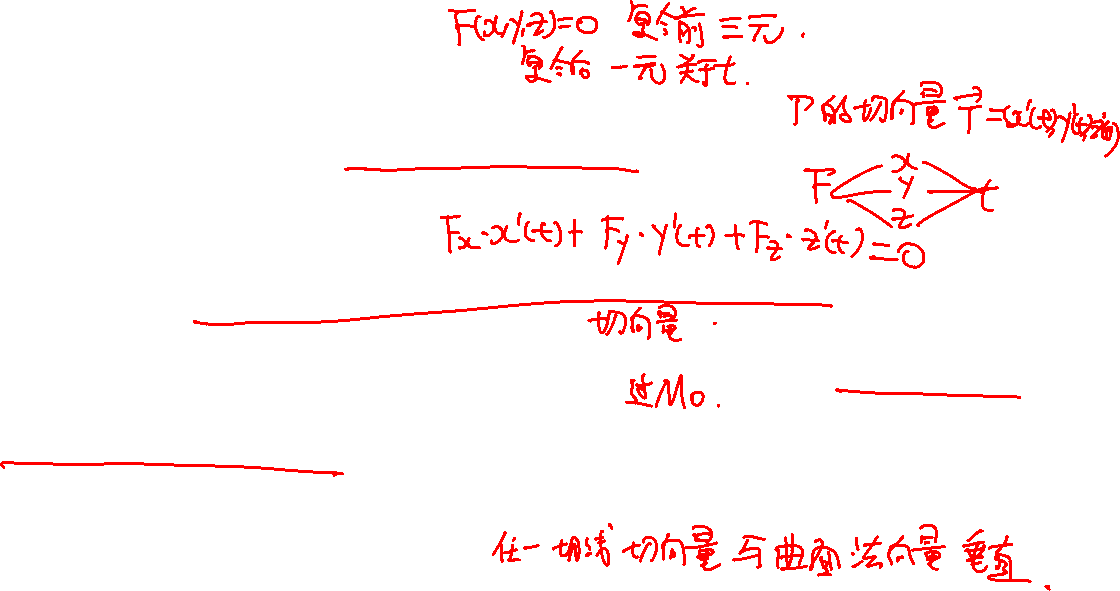 F(x,y,z)=0 复合前 三元.
复合后 一元 关于t.
Γ的切向量 T⃗=(x'(t),y'(t),z'(t))
x
F y t
z
Fx·x'(t)+ Fy·y'(t)+Fz·z'(t)=0
切向量.
过M0.
任一切线 切向量 与曲面 法向量 垂直.